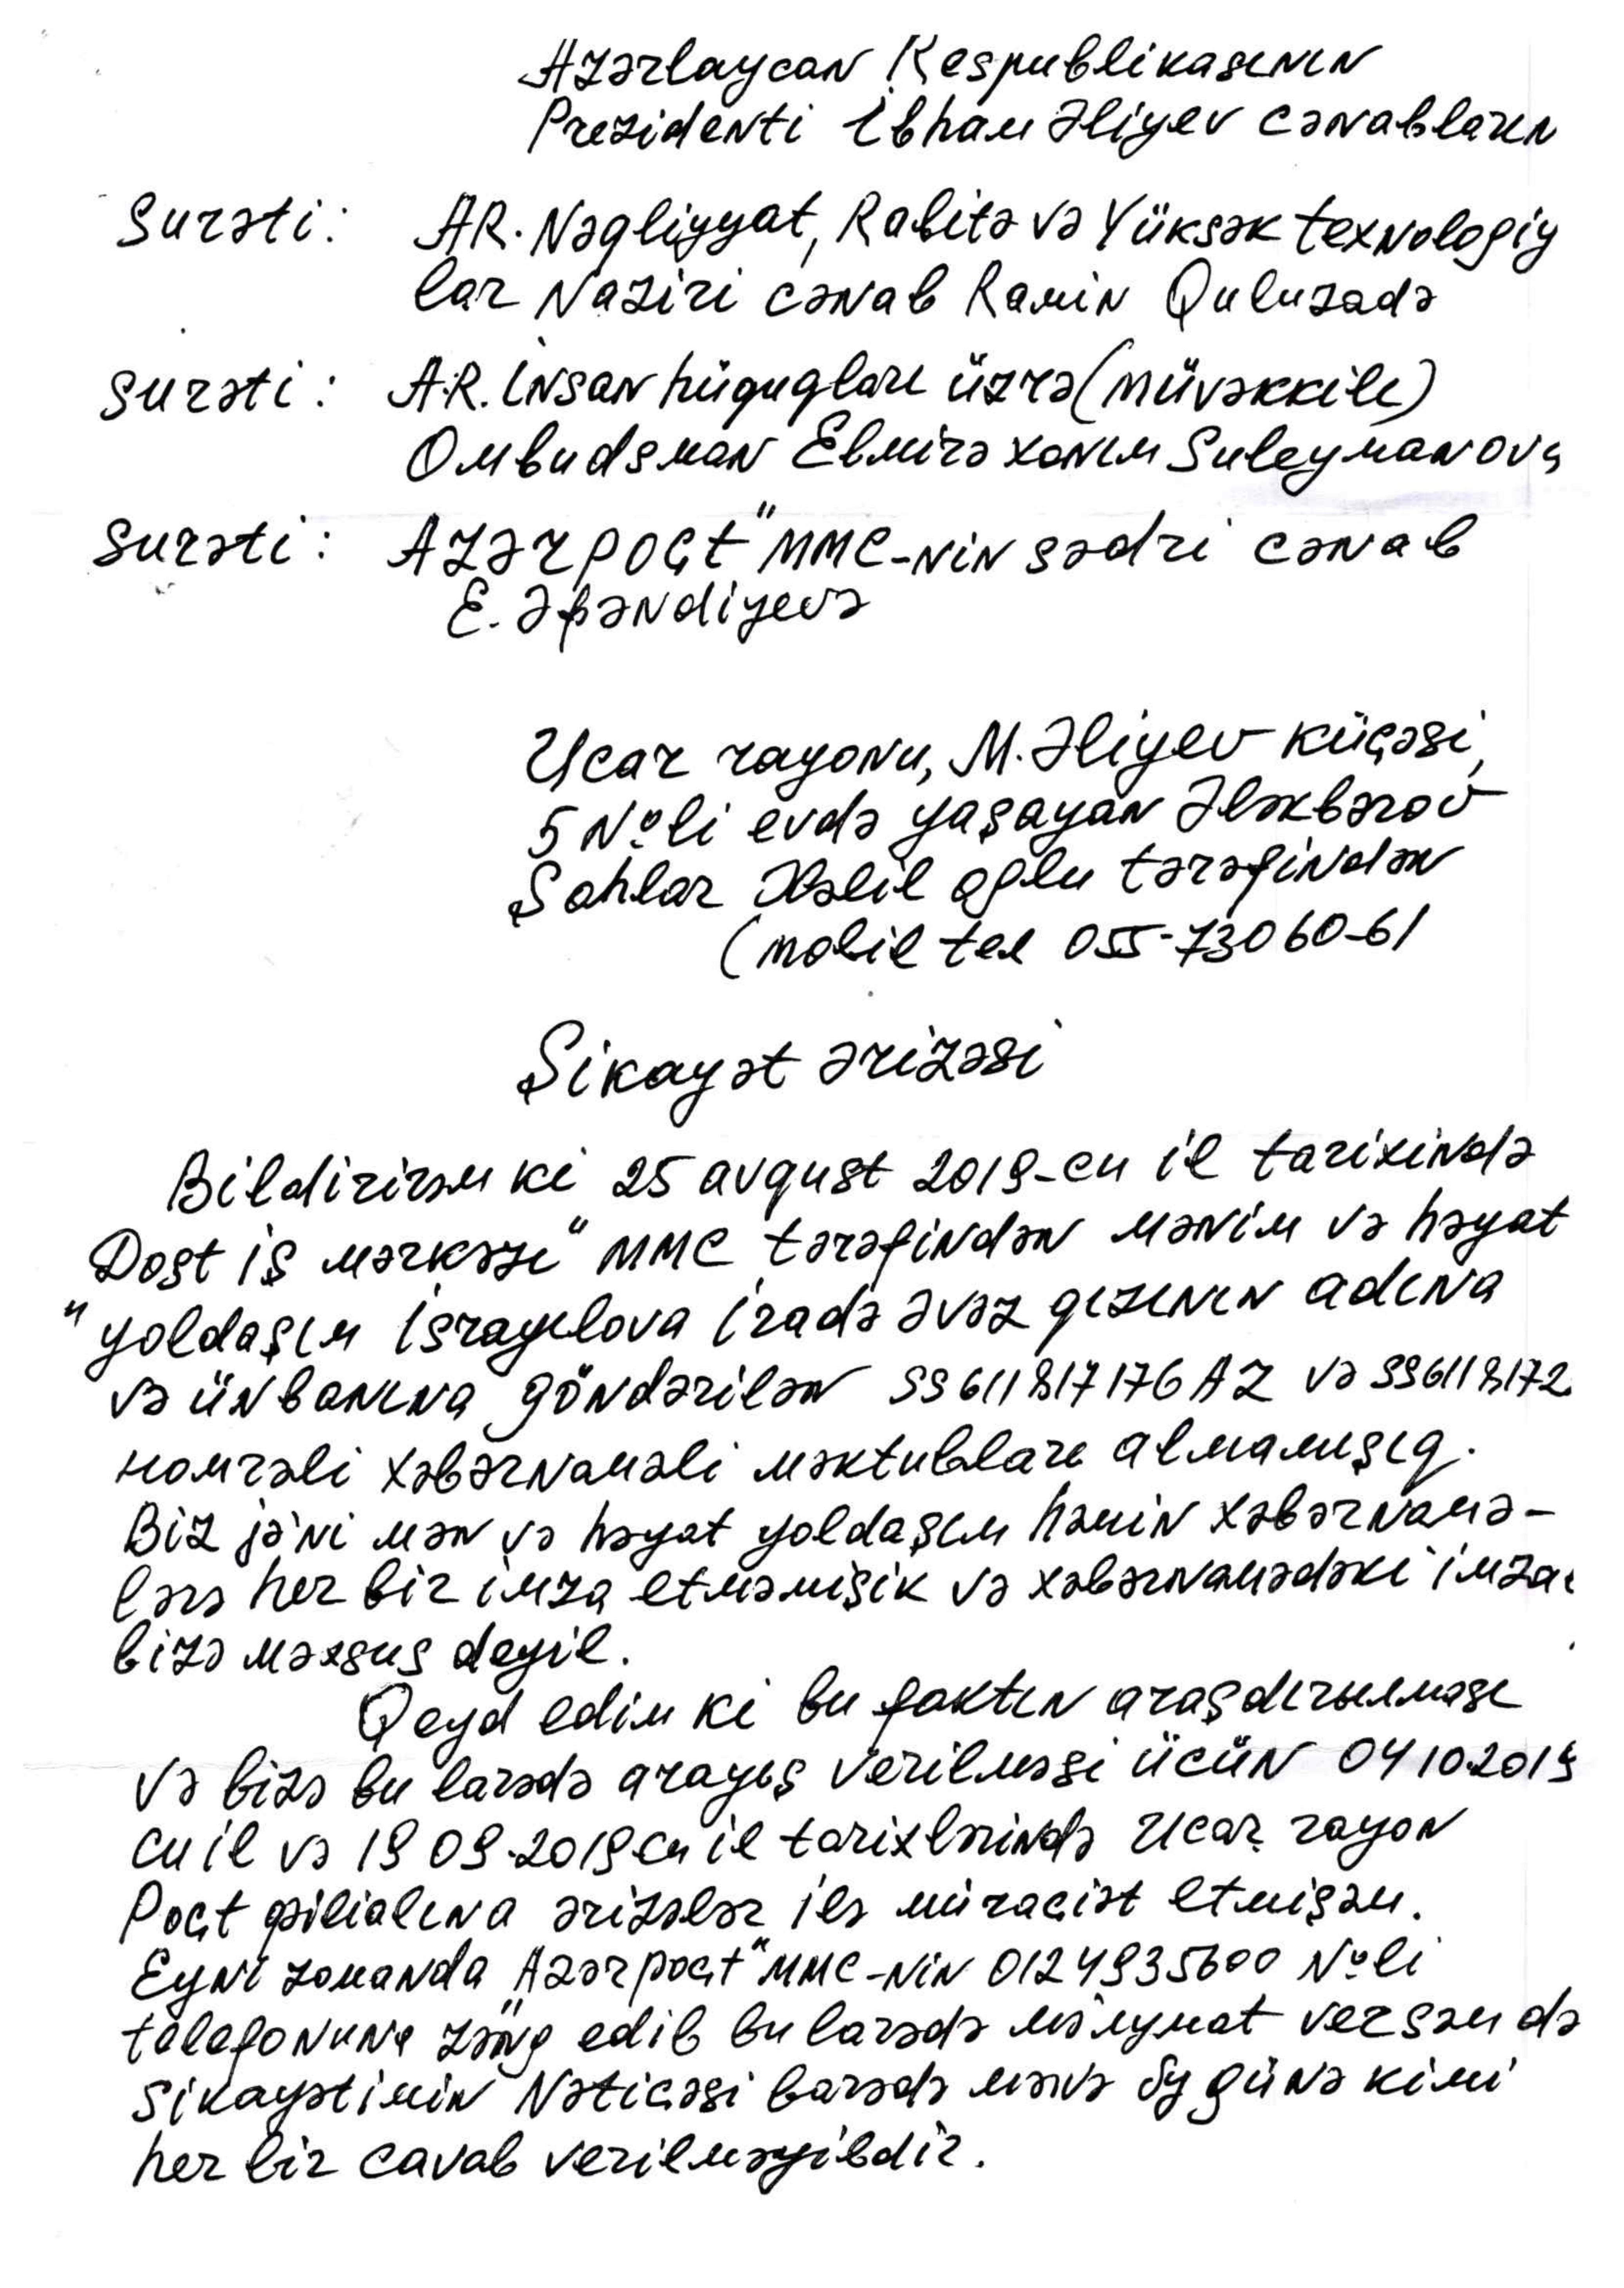 Azərbaycan Respublikasının
Prezidenti İlham Əliyev cənabların
Surəti: AR. Nəqliyyat, Rabitə və Yüksək texnologiy
lar Naziri cənab Ramin Quluzadə
surəti: A.R. İnsan hüquqları üzrə (müvəkkili)
Ombudsman Elmirə xanım Suleymanova
surəti: Azərpoçt" MMC-nin sədri cənab
E. Əfəndiyevə
Ucar rayonu, M. Əliyev küçəsi,
5 №li evdə yaşayan Ələkbərov
Şahlar Xəlil oğlu tərəfindən
(mobil tel 055-73060-61
Şikayət ərizəsi
Bildirirəm ki 25 avqust 2019-cu il tarixində
Dost iş mərkəzi" MMC tərəfindən mənim və həyat
"yoldaşım İsrayılova İradə Əvəz qızının adına
və ünbanına göndərilən SS611817176AZ və SS6118172
nomrəli xəbərnaməli məktubları almamışıq.
Biz jə'ni mən və həyat yoldaşım həmin xəbərnamə-
lərə her bir imza etməmişik və xəbərnamədəki imza
bizə məxsus deyil.
Qeyd edim ki bu faktın araşdırılması
və bizə bu barədə arayış verilməsi üçün 04102019
cu il və 19 09.2019cu il tarixlərində Ucar rayon
Poçt filialına ərizələr ilə müraciət etmişəm.
Eyni zamanda "Azərpoçt" MMC-nin 0124935600 №li
telefonuna zəng edib bu barədə məlymat versəm də
şikayətimin Nəticəsi barədə mənə by günə kimi
her bir cavab verilməyibdir.